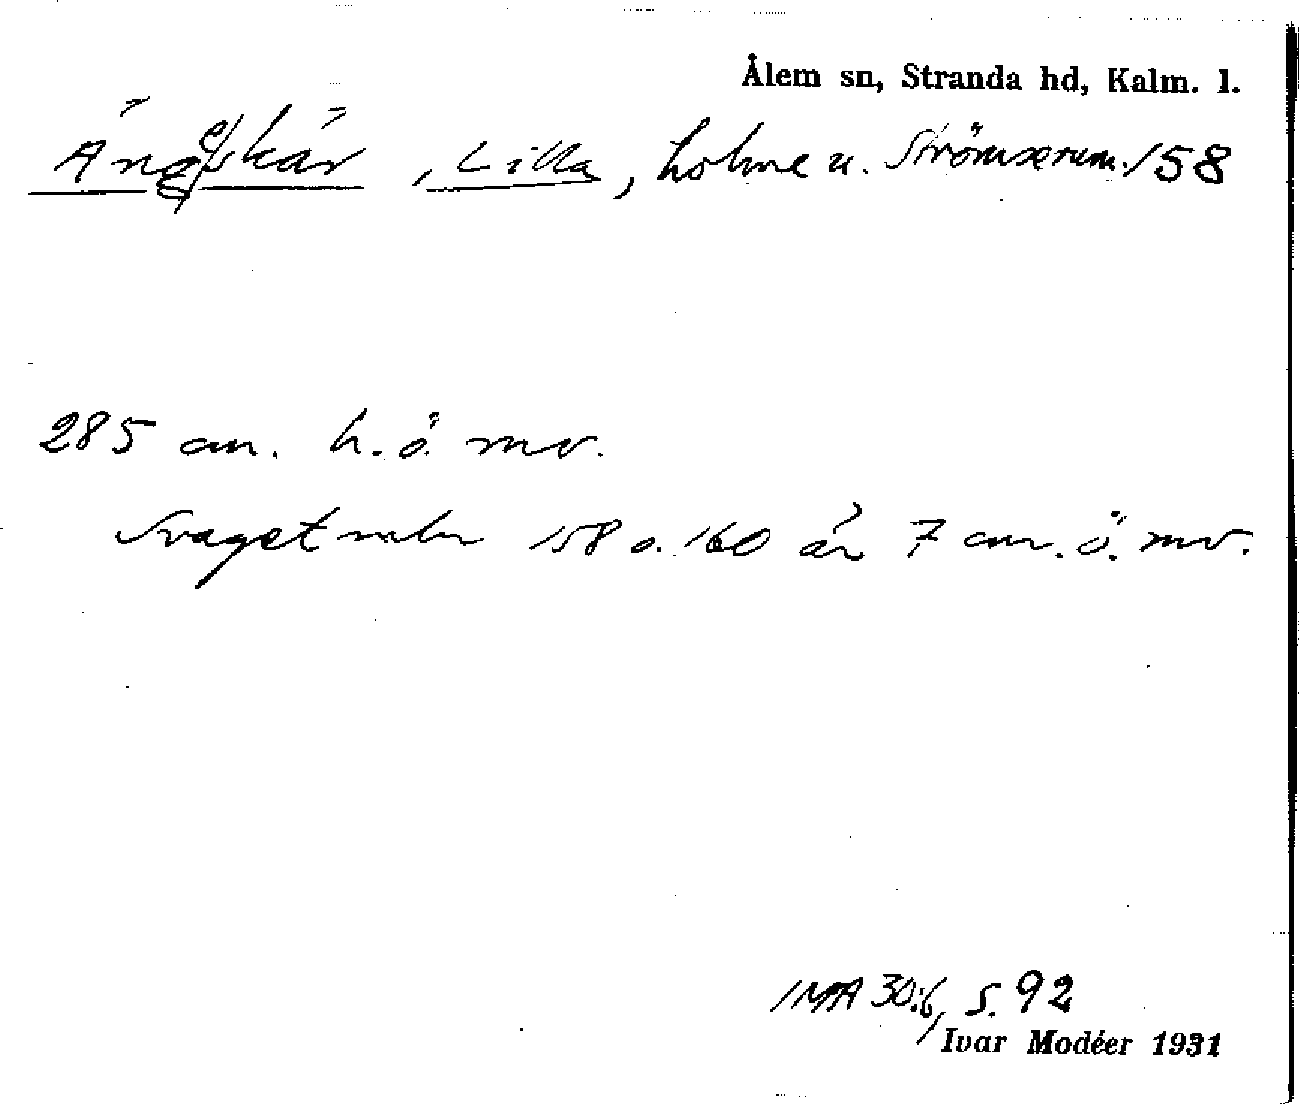 Ålem sn, Stranda hd, Kalm. l.
Ängeskär, Lilla, holme u. Strömserum. /58
285 cm. h. ö. mv.
Svaget mln 158 o. 160 är 7 cm. ö. mv.
IMA 30:6, s. 92
Ivar Modéer 1931